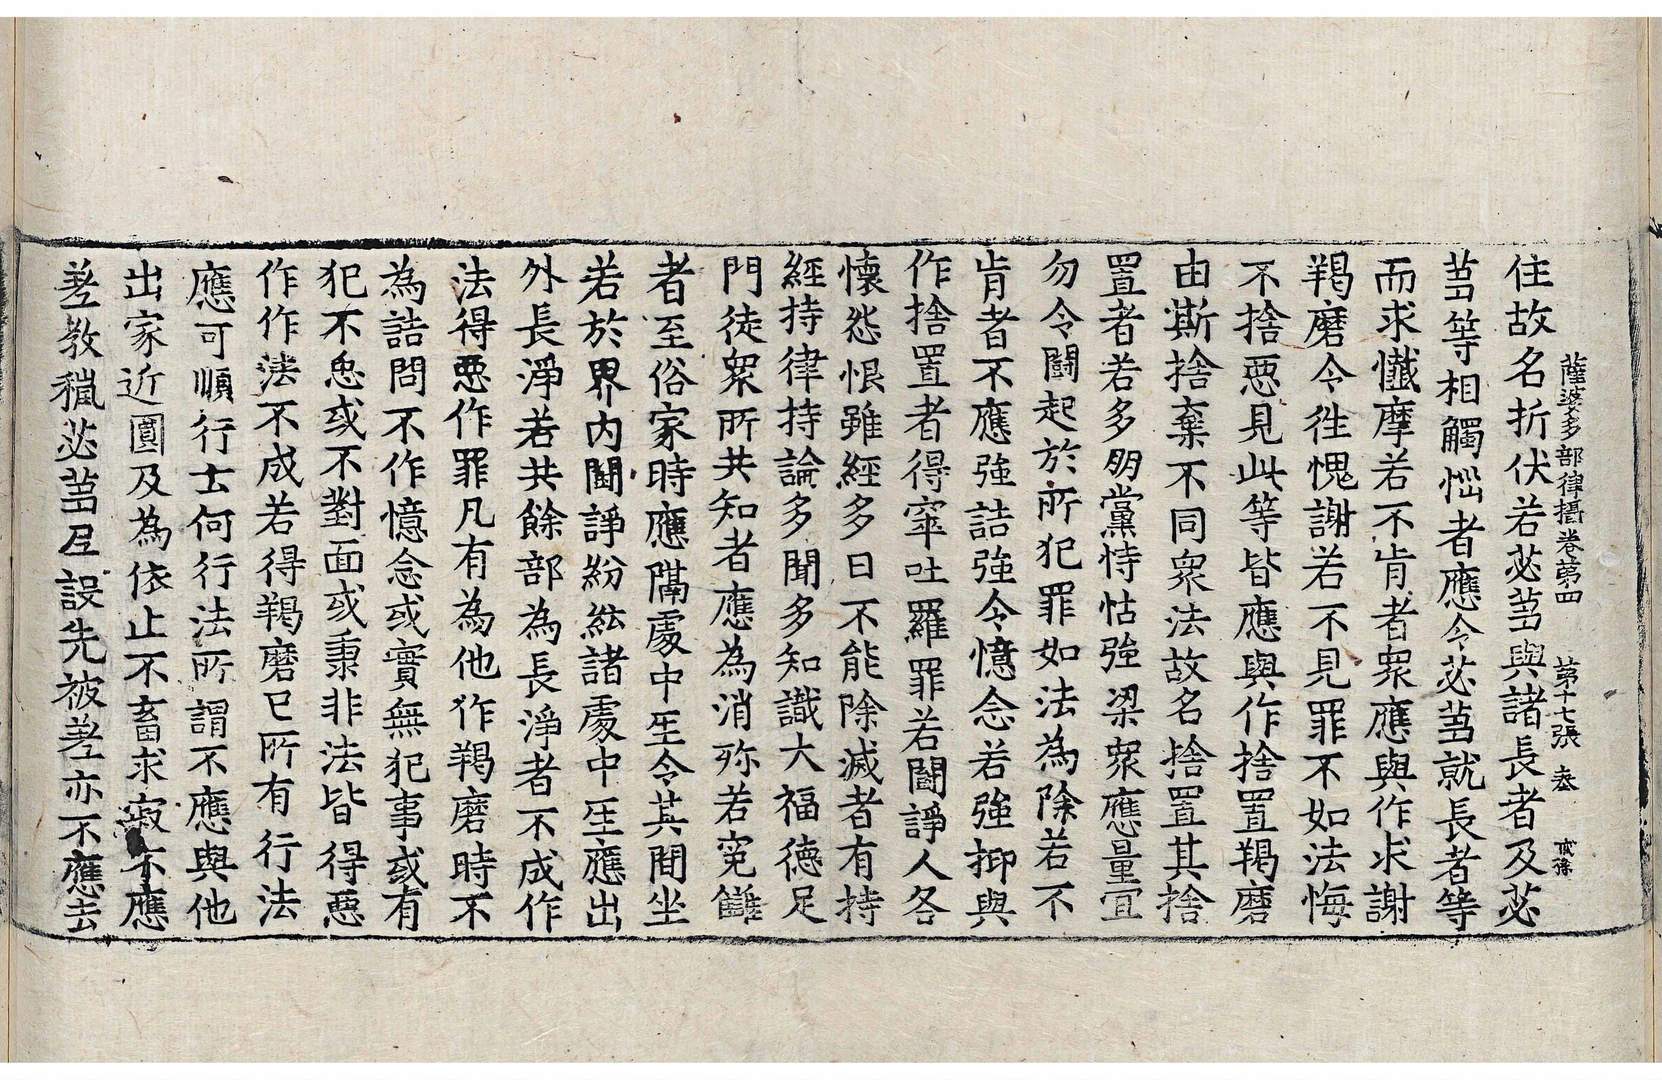 薩婆多部律攝卷第四　第十七張　叅
住故名折伏若苾蒭與諸長者及苾
蒭等相觸惱者應令苾蒭就長者等
而求懺摩若不肯者衆應與作求謝
羯磨令徃愧謝若不見罪不如法悔
不捨惡見此等皆應與作捨置羯磨
由斯捨棄不同衆法故名捨置其捨
置者若多朋黨恃怙強梁衆應量宜
勿令鬪起於所犯罪如法為除若不
肯者不應強詰強令憶念若強抑與
作捨置者得窣吐羅罪若鬪諍人各
懷怨恨雖經多日不能除滅者有持
經持律持論多聞多知識大福德足
門徒衆所共知者應為消殄若寃讎
者至俗家時應隔處中坐令其間坐
若於界內鬪諍紛紜諸處中坐應出
外長淨若共餘部為長淨者不成作
法得惡作罪凡有為他作羯磨時不
為詰問不作憶念或實無犯事或有
犯不忠或不對面或秉非法皆得惡
作作法不成若得羯磨已所有行法
應可順行云何行法所謂不應與他
出家近圓及為依止不畜求寂不應
差教授苾蒭尼設先被差亦不應去